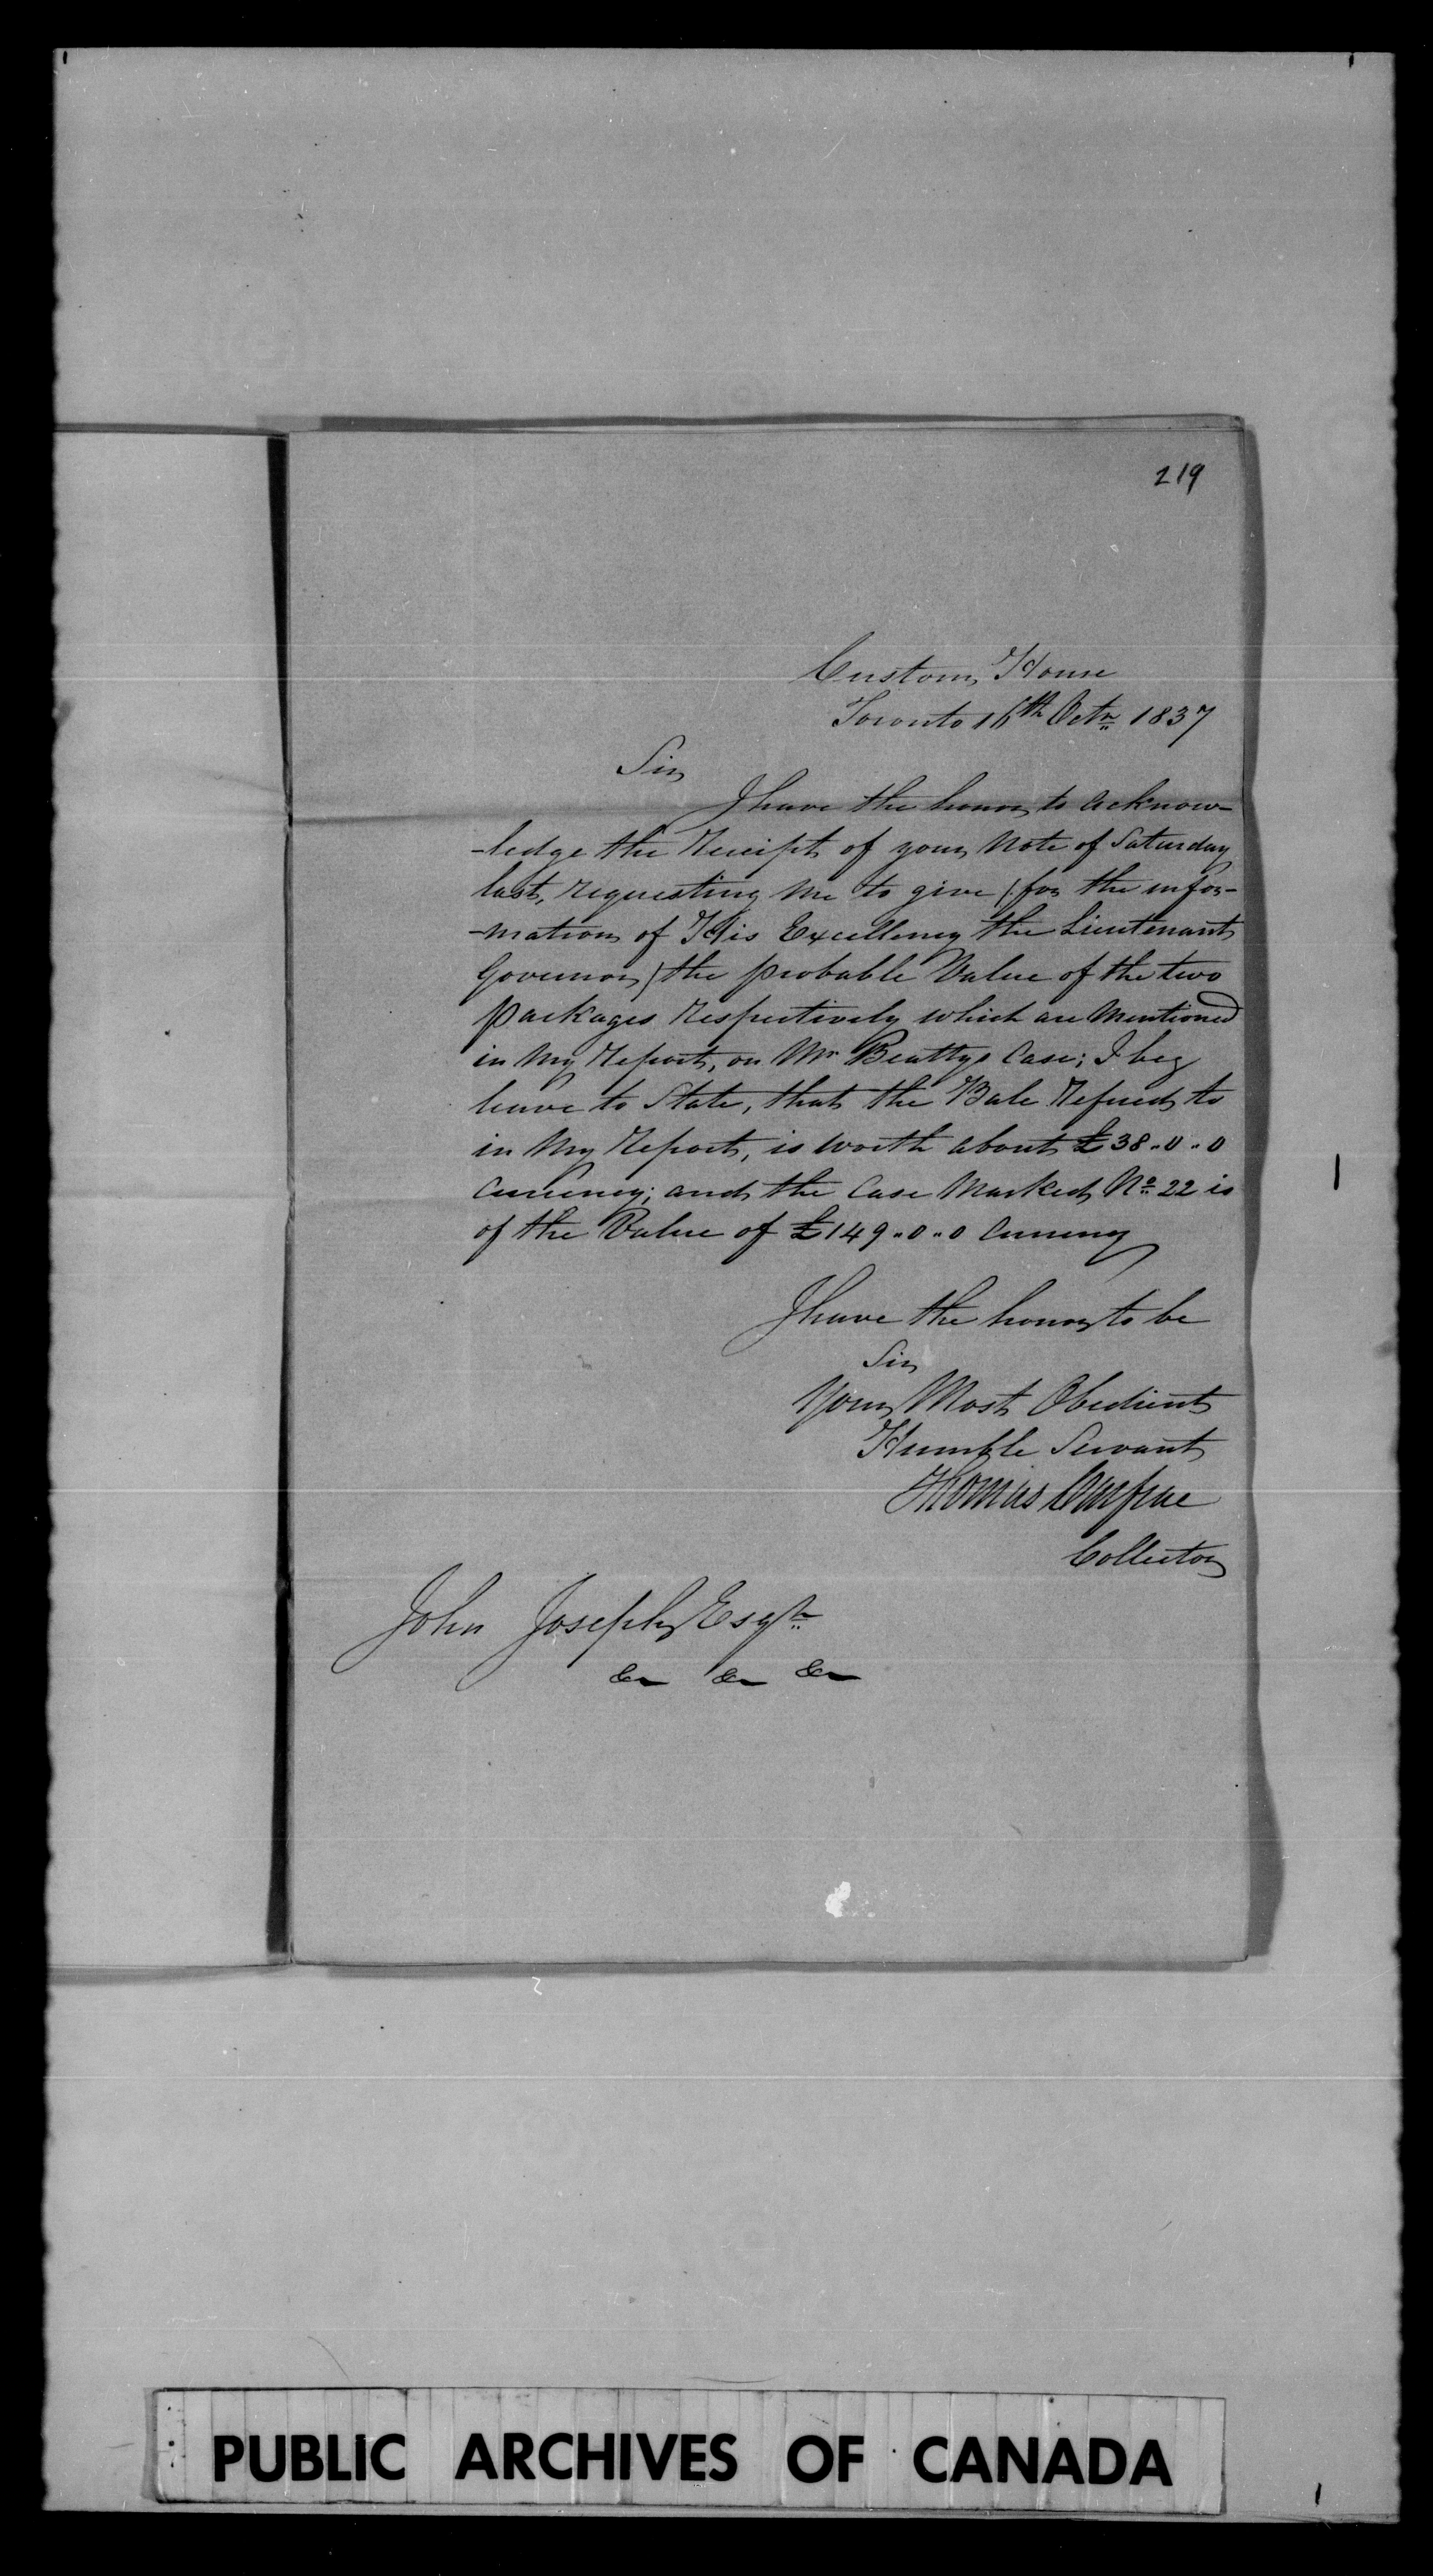 219
Custom House
Toronto 16th Octr 1837
Sir
I have the honor to acknow-
-ledge the Receipt of your Note of Saturday
last, requesting me to give (for the infor-
-mation of His Excellency the Lieutenant
Governor) the probable Value of the two
packages Respectively which are Mentioned
in My Report, on Mr Beattys Case; I beg
leave to State, that the Bale Refered to
in My Report, is worth about £38.0.0
Currency; and the Case Marked No 22 is
of the Value of £149.0.0 Currency
I have the honor to be
Sir
Your Most Obedient
Humble Servant
Thomas Carfrae
Collector
John Joseph Esqr
&c &c &c
PUBLIC ARCHIVES OF CANADA